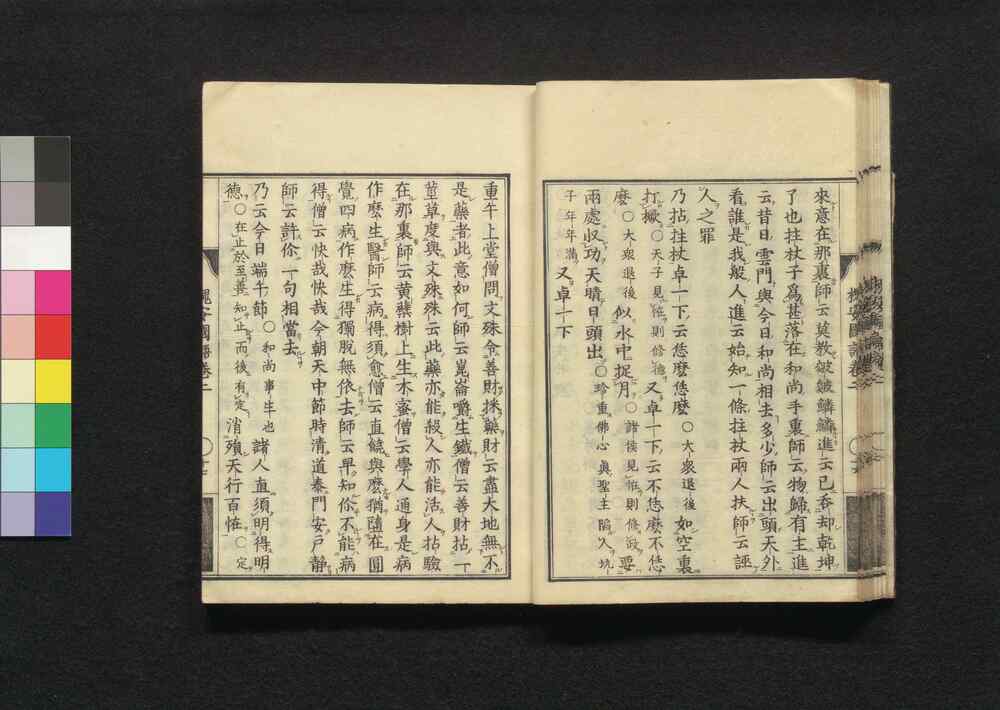 來意在那裏師云莫教皴皴鱗鱗進云已吞却乾坤
了也拄杖子爲甚落在和尚手裏師云物歸有主進
云昔日雲門與今日和尚相去多少師云出頭天外
看誰是我般人進云始知一條拄杖兩人扶師云誣
人之罪
乃拈拄杖卓一下云恁麼恁麼〇大衆退後如空裏
打橛〇天子見恠則修德又卓一下云不恁麼不恁
麼〇大衆退後似水中捉月〇諸侯見恠則修政要
兩處収功天晴日頭出〇珍重佛心眞聖主陷人坑
子年年滿又卓一下
槐安國語卷二
重午上堂僧問文殊令善財採藥財云盡大地無不
是藥者此意如何師云崑崙嚼生鐵僧云善財拈一
莖草度與文殊殊云此藥亦能殺人亦能活人拈驗
在那裏師云黄蘗樹上生木蜜僧云學人通身是病
作麽生醫師云病得須愈僧云直饒與麽猶墮在圓
覺四病作麽生得獨脫無依去師云早知你不能病
得僧云快哉快哉今朝天中節時清道泰門安戸静
師云許你一句相當去
乃云今日端午節〇和尚事生也諸人直須明得明
德〇在止於至善知止而後有定消殞天行百恠〇定
槐安國語卷二